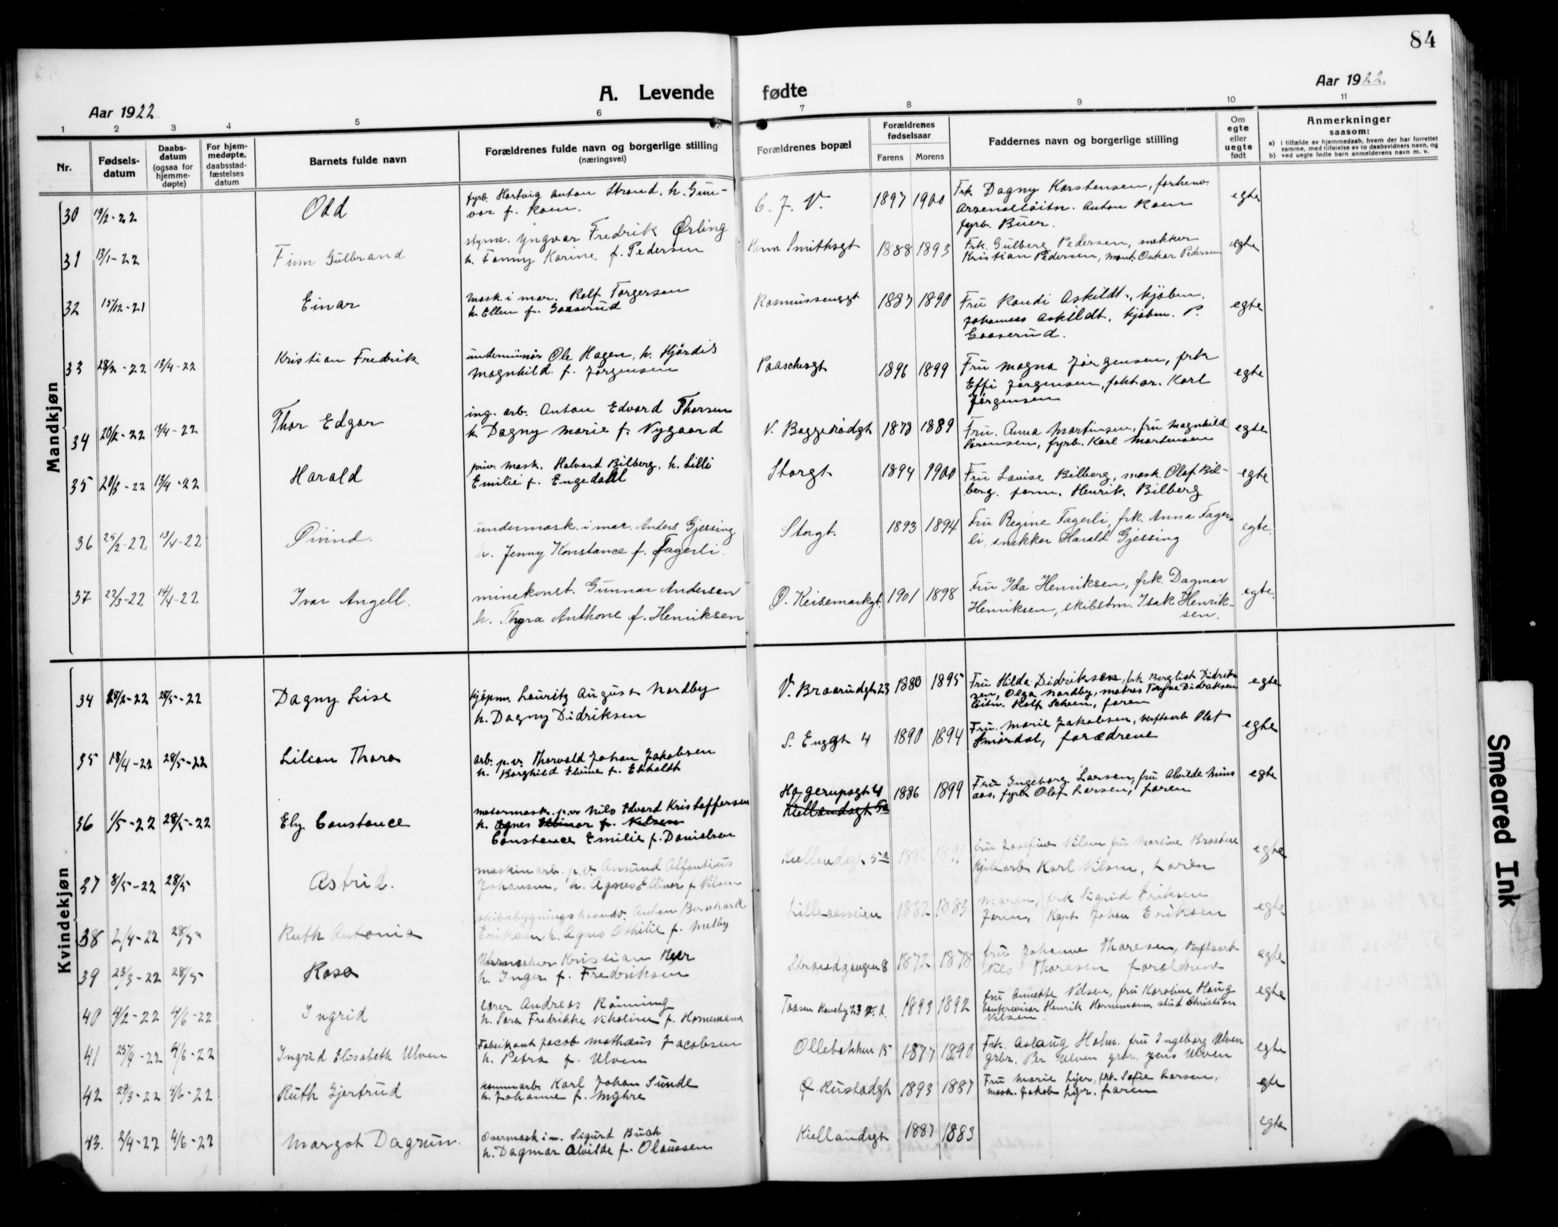 84
Aar 1922
A. Levende fødte
Aar 1922
1 2 3 4 5 6 7 8 9 10 11
Nr.
Fødsels-
datum
Daabs-
datum
(ogsaa for
hjemme-
døpte)
For hjem-
medøpte,
daabsstad-
fæstelses
datum
Barnets fulde navn
Forældrenes fulde navn og borgerlige stilling
(næringsvei)
Forældrenes bopæl
Forældrenes
fødselsaar
Farens Morens
Faddernes navn og borgerlige stilling
Om
egte
eller
uegte
født
Anmerkninger
saasom:
a) i tilfælde av hjemmedaab, hvem der har forrettet
samme, med tilføielse av to daabsvidners navn, og
b) ved uegte fødte barn anmelderens navn m. v.
Mandkjøn
30 19/2-22 Odd
fyrb. Hartvig Anton Strand, h. Gun-
vor f. Roen.
C. J. V. 1897 1900
Frk. Dagny Karstensen, forhenv.
Anton Roen
fyrb. Buer.
egte
31 13/1-22 Finn Gulbrand
styrm. Yngvar Fredrik Ørling
h. Fanny Karine f. Pedersen
Smithsgt 1888 1893
Frk. Gulberg Pedersen, snekker
Kristian Pedersen, mont. Oskar Pedersen
egte
32 15/12-21 Einar
mask. i mar. Rolf Torgersen
h. Ellen f. Gaaserud
Rasmussensgt 1887 1890
Fru Randi Askildt, kjøbm.
Johannes Askildt, kjøbm. P.
Gaaserud.
egte
33 28/2-22 13/4-22 Kristian Fredrik
underminør Ole Hagen, h. Hjørdis
Magnhild f. Jørgensen
Paaschesgt 1896 1899
Fru Magna Jørgensen, frk
Effi Jørgensen, faktor. Karl
Jørgensen
egte
34 20/2-22 13/4-22 Thor Edgar
ing. arb. Anton Edvard Thorsen
h. Dagny Marie f. Nygaard
V. Baggerødgt 1878 1889
Fru. Anna Martinsen, fru Magnhild
Sørensen, fyrb. Karl Martinsen
egte
35 13/4-22 Harald
priv. mask. Halvard Bilberg, h. Lilli
Emilie f. Engedahl
Storgt 1894 1900
Fru Louise Bilberg, mask. Olaf Bil-
berg. form. Henrik Bilberg
egte
36 25/2-22 13/4-22 Øivind.
undermask. i mar. Anders Gjessing
h. Jenny Konstance f. Fagerli.
Storgt. 1893 1894
Fru Regine Fagerli, frk. Anna Fager-
li, snekker Harald Gjessing
egte.
37 22/3-22 14/4-22 Ivar Angell.
minekonst. Gunnar Andersen
h. Thyra Anthone f. Henriksen
Ø. Keisemarkgt 1901 1898
Fru Ida Henriksen, frk. Dagmar
Henriksen, skibstm. Isak Henrik-
sen.
egte.
Kvindekjøn
34 28/5-22 Dagny Lise
kjøpm. Lauritz August Nordby
h. Dagny Didriksen
V. Braarudgt 23 1880 1895
Fru Hilda Didriksen, frk Bergliot Didrik-
sen, Olga Nordby, Didriksen
Rolf faren
egte
35 18/4-22 28/5-22 Lilean Thora
arb. p.v. Thorvald Johan Jakobsen
h. Borghild Eline f. Ekholdt
S. Enggt 4 1890 1894
Fru. Marie Jakobsen, verftsarb Olaf
Smørdal, forædrene
egte
36 1/5-22 28/5-22 Ely Constance
motormask. p.v. Nils Edvard Kristoffersen
h. Agnes Ellinor f. Nilsen
Constance Emilie f. Danielsen
Hagerupsgt 4
Kiellandsgt 5a
1886 1899
Fru Ingeborg Larsen, fru Alvilde
fyrb Olaf Larsen, faren
egte
37 8/5-22 28/5 Astrid.
maskinarb. p.v. Amund Alfontius
Johansen, h. Agnes Ellinor f Nilsen
Kiellandsgt 5a 1886 1891
fru Josefine Nilsen fru Martine
Karl Nilsen, faren
egte
38 2/4-22 28/5 Ruth Antonia
skibsbygningskandr. Anton Bernhard
Eriksen, h. Agnes Othilie f. Melby
Lilleaasveien 1882 1883
moren, frk Sigrid Eriksen
faren, Kapt Johan Eriksen
egte
39 23/3-22 28/5 Rosa
Kristian
h. Inger f. Fredriksen
Strandgangen 8 1872 1878
fru Johanne Thoresen, verftsarb
Nils Thoresen forældrene
egte
40 4/2-22 4/6-22 Ingrid
lærer Andreas Rønning
h. Sara Fredrikke Nikoline f. Hornemann
1893 1892
fru Annette Nilsen, fru Karoline Haug
Henrik Hornemann stud Christian
Nilsen
egte
41 4/6-22 Ingrid Elisabeth Ulven
Fabrikant Jacob Mathæus Jacobsen
h. Petra f. Ulven
Ollebakken 15 1877 1890
Frk. Aslaug Holm, fru Ingeborg Ulven
grbr. Per Ulven grbr. Jens Ulven
egte
42 29/3-22 4/6-22 Ruth Gjertrud
kommarb. Karl Johan Sunde
h. Johanne f. Myhre
Ø Rustadgt 1893 1887
Fru Marie frk. Sofie Larsen,
mask. Jakob faren
egte
43. 2/4-22 4/6-22 Margot Dagrun.
overmask i m. Sigurd Buch
h. Dagmar Alvilde f. Olaussen
Kiellandsgt 1887 1883
egte
Smeared Ink